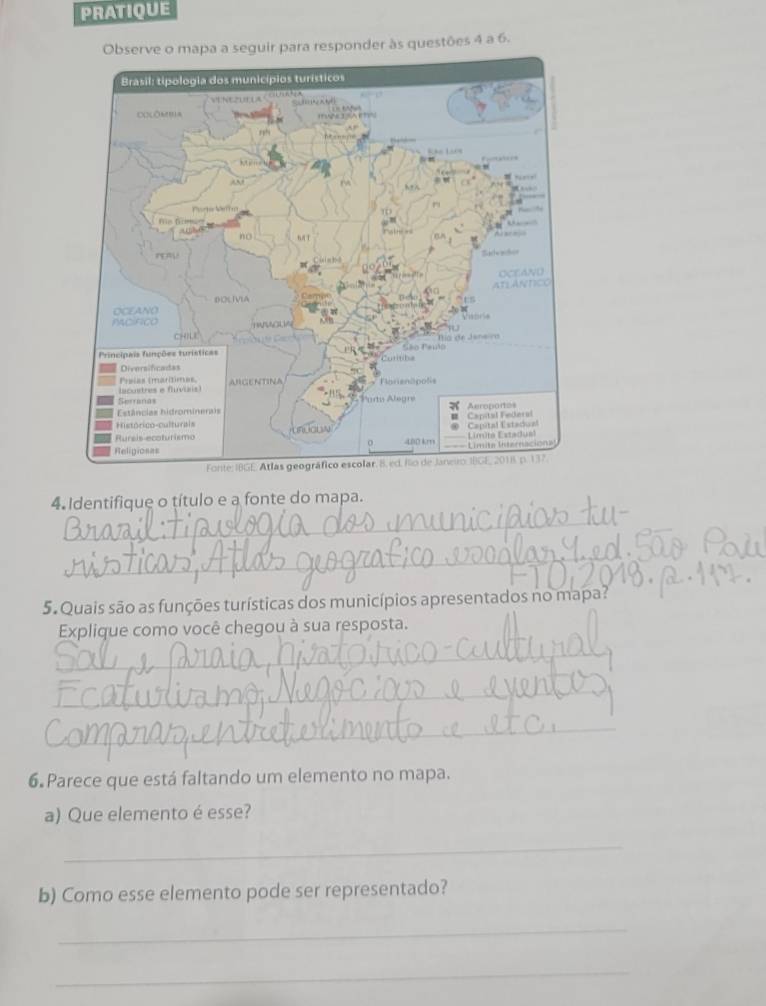 PRATIQUE
Observe o mapa a seguir para responder às questões 4 a 6.
Brasil: tipologia dos municípios turísticos
VENEZUELA
GUIANA
SURINAME
COLÔMBIA
RR
AP
Belém
São Luís
Fortaleza
Natal
AM
PA
MA
CE
PI
Porto Velho
TO
Recife
RO
MT
Palmas
BA
Aracaju
PERU
Cuiabá
Salvador
OCEANO
ATLÂNTICO
BOLÍVIA
Campo
Grande
ES
Vitória
OCEANO
PACÍFICO
PARAGUAI
SP
RJ
Rio de Janeiro
CHILE
São Paulo
PR
Curitiba
SC
Florianópolis
ARGENTINA
RS
Porto Alegre
URUGUAI
Principais funções turísticas
Diversificadas
Praias (marítimas,
lacustres e fluviais)
Serranas
Estâncias hidrominerais
Histórico-culturais
Rurais-ecoturismo
Religiosas
Aeroportos
Capital Federal
Capital Estadual
Limite Estadual
Limite Internacional
0 480 km
Fonte: IBGE. Atlas geográfico escolar. 8. ed. Rio de Janeiro: IBGE, 2018. p. 137.
4. Identifique o título e a fonte do mapa.
Brazil: tipologia dos municipios tu-
risticas, Atlas geografico escolar. 4. ed. São Pau
FTD, 2018. p. 117.
5. Quais são as funções turísticas dos municípios apresentados no mapa?
Explique como você chegou à sua resposta.
Sol e praia, histórico-cultural,
Ecaturismo, Negócios e eventos,
Compras, entretelimento e etc.
6. Parece que está faltando um elemento no mapa.
a) Que elemento é esse?
b) Como esse elemento pode ser representado?